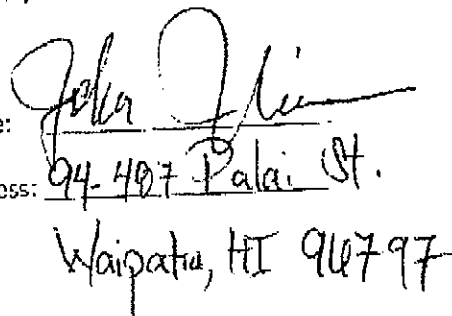 e: John
ess: 94-487 Palai St.
Waipahu, HI 96797